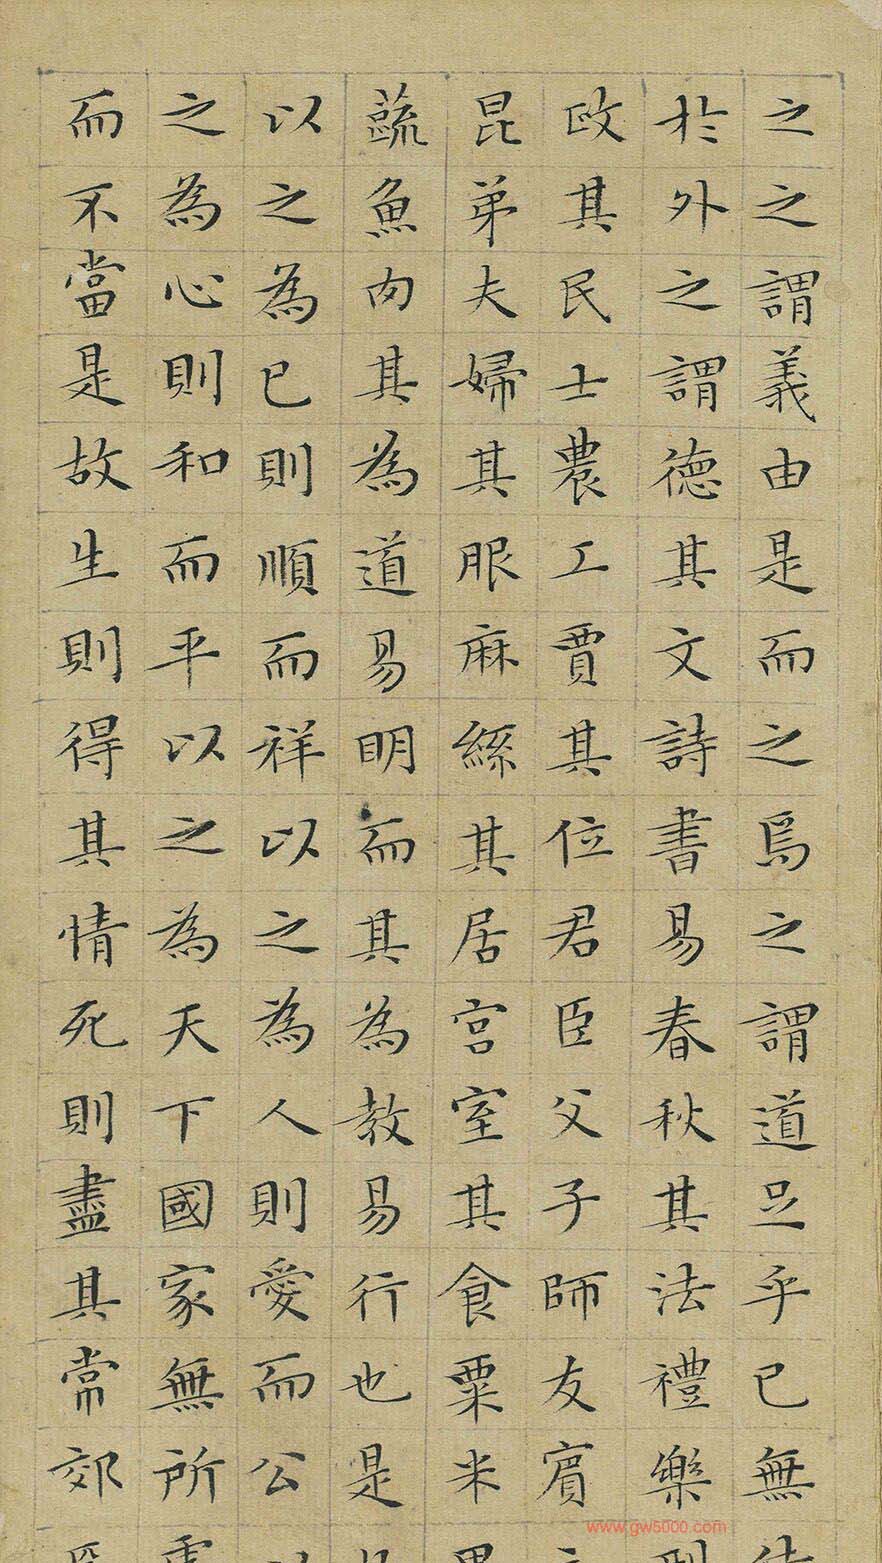 之之謂義由是而之焉之謂道足乎已無
於外之謂德其文詩書易春秋其法禮樂
政其民士農工賈其位君臣父子師友賓
昆弟夫婦其服麻絲其居宮室其食粟米
蔬魚肉其為道易明而其為教易行也是
以之為已則順而祥以之為人則愛而公
之為心則和而平以之為天下國家無所
而不當是故生則得其情死則盡其常郊
www.gw5000.com